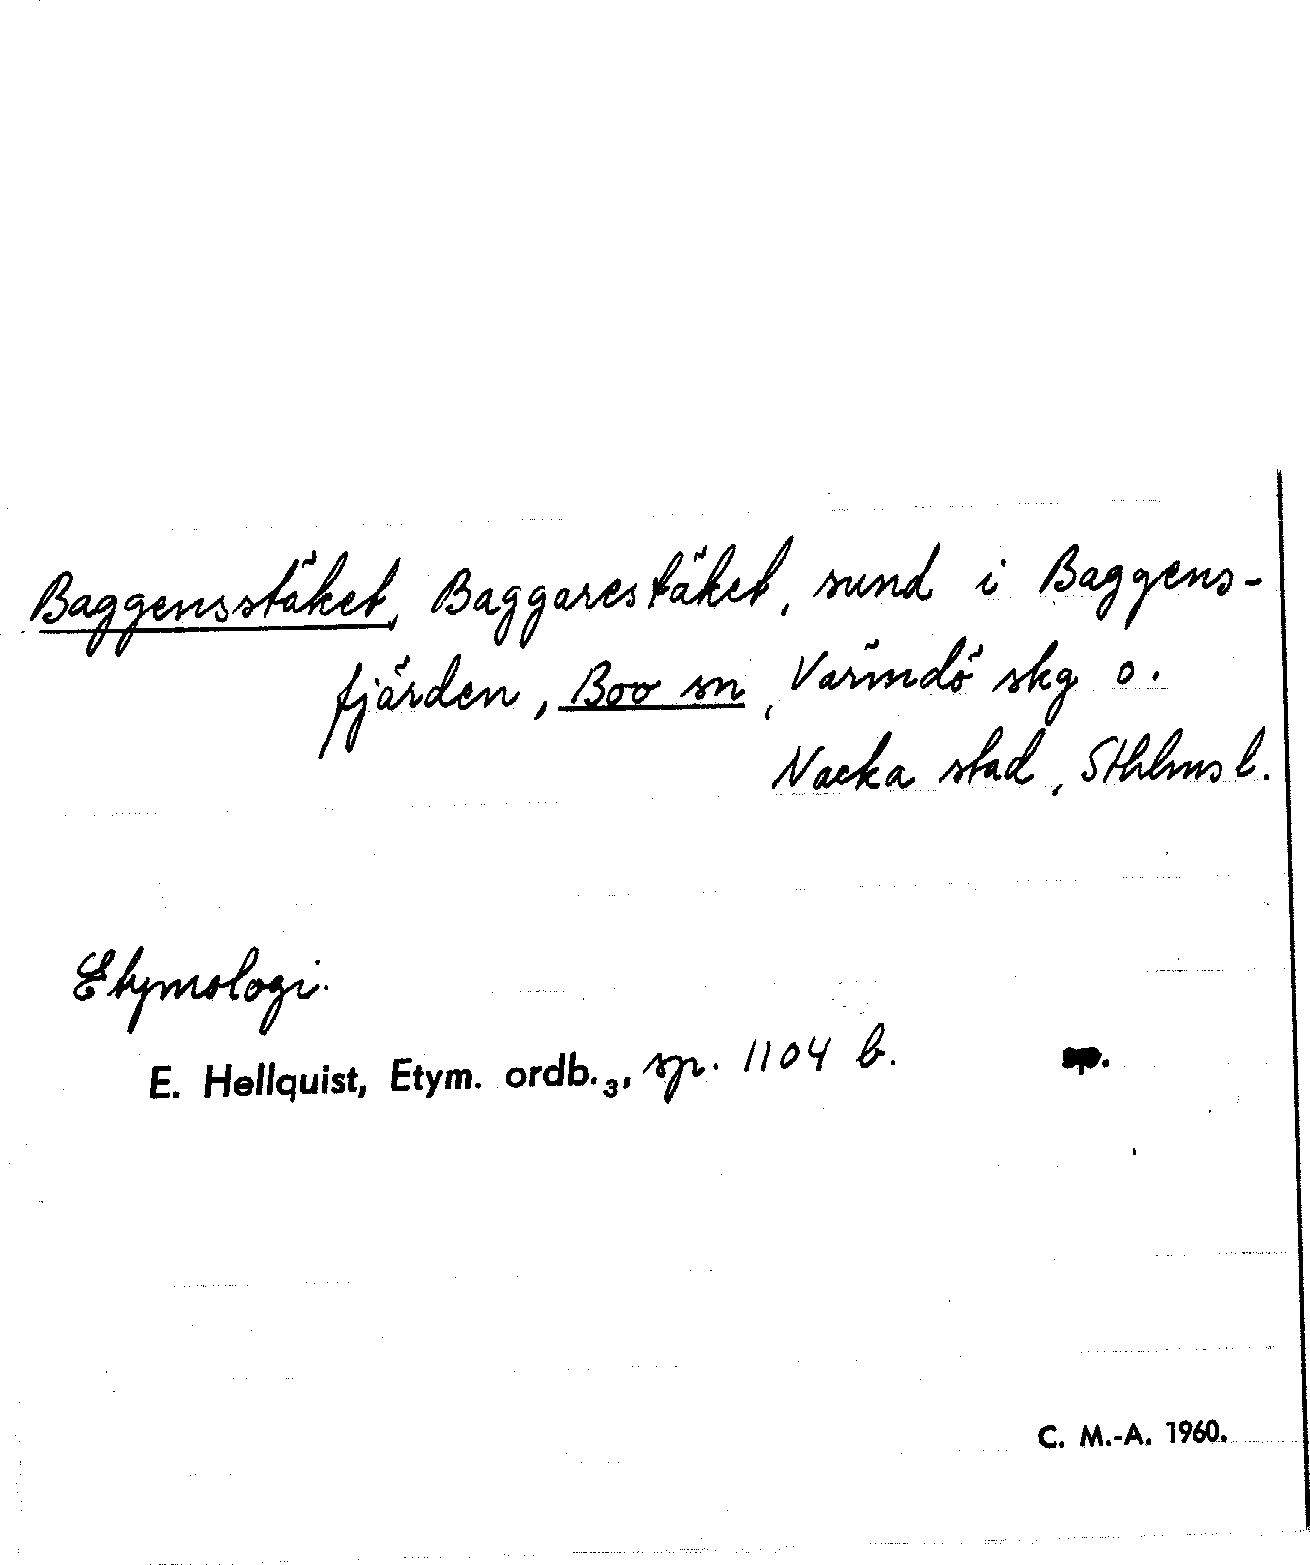 Baggensstäket, Baggarestäket, sund i Baggens-
fjärden, Boo sn, Värmdö skg o.
Nacka stad, Sthlms l.
Etymologi.
E. Hellquist, Etym. ordb.₃, sp. 1104 b.
C. M.-A. 1960.